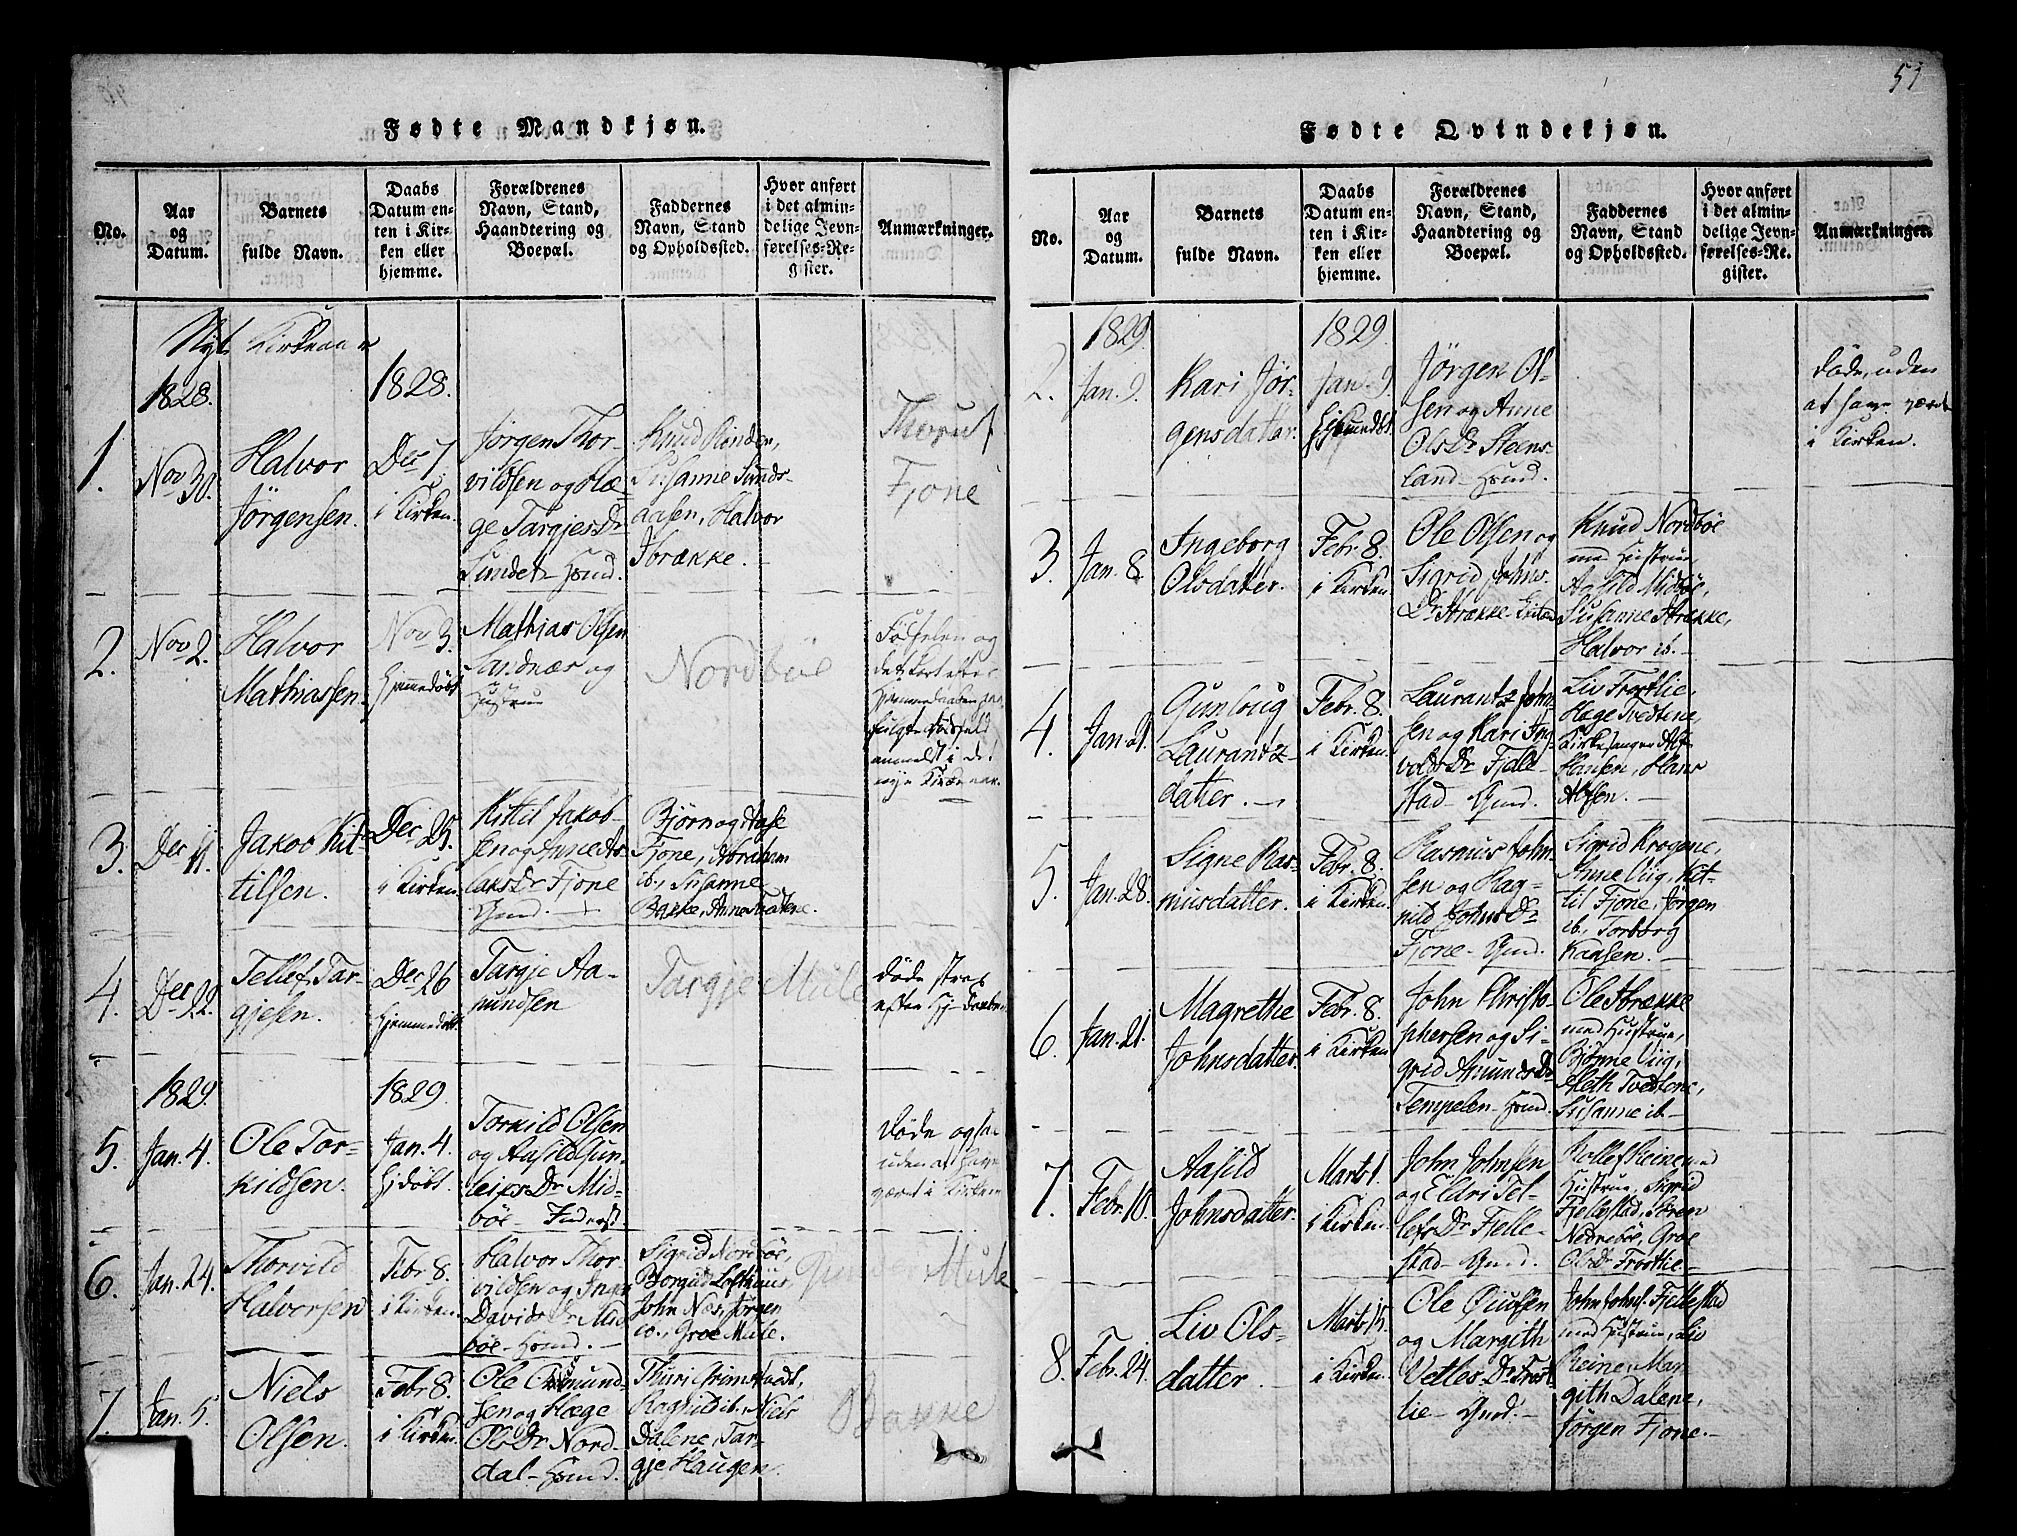 51
Fødte Mandkjøn.
No.
Aar
og
Datum.
Barnets
fulde Navn.
Daabs
Datum en-
ten i Kir-
ken eller
hjemme.
Forældrenes
Navn, Stand,
Haandtering og
Boepæl.
Faddernes
Navn, Stand
og Opholdssted.
Hvor anført
i det almin-
delige Jevn-
førelses-Re-
gister.
Anmærkninger.
Nyt Kirkeaar
1828.
1828.
1.
Nov 30.
Halvor
Jørgensen.
Dec 7.
i Kirken.
Jørgen Thor-
vildsen og Hæ-
ge Targjes Dr
Sundet
Knud Rinden,
Susanne Sunds-
aasen, Halvor
Strække.
Fjone
2.
Nov 2.
Halvor
Mathiassen.
Nov 3.
Hjemmedøbt
Mathias Olsen
Sandnær og
Hustrue
Nordbøe
Fødselen og
3.
Dec 11.
Jakob Kit-
tilsen.
Dec 25.
i Kirken.
Kittil Jakob-
sen og Anne As-
laks Dr Fjone
Bjørn og Aase
Fjone, Abraham
ib., Susanne
Bakke, Anne
4.
Dec 22.
Tellef Tar-
gjesen.
Dec 26
Hjemmedøbt
Targje Aa-
mundsen
Targje Mule
døde strax
efter
1829.
1829.
5.
Jan. 4.
Ole Tor-
kildsen.
Jan. 4.
Hjdøbt
Torkild Olsen
og Aasild Gun-
leiks Dr Mid-
bøe
døde
uden at have
været i Kirken
6.
Jan. 24.
Thorvild
Halvorsen
Febr 8.
i Kirken.
Halvor Thor-
vildsen og Inge
Davids Dr Mid
bøe
Sigrid Nordbøe,
Borgild Lofthuus
John Næs, Jørgen
ib., Groe Mule.
Mule
7.
Jan. 5.
Niels
Olsen.
Febr 8.
i Kirken.
Ole Osmund-
sen og Hæge
Ols Dr Nord-
dal
Thuri Grimstvedt,
Ragnild ib., Niels
Dalene, Tar-
gje Haugen.
Bakke
Fødte Qvindekjøn.
No.
Aar
og
Datum.
Barnets
fulde Navn.
Daabs
Datum en-
ten i Kir-
ken eller
hjemme.
Forældrenes
Navn, Stand,
Haandtering og
Boepæl.
Faddernes
Navn, Stand
og Opholdssted.
Hvor anført
i det almin-
delige Jevn-
førelses-Re-
gister.
Anmærkninger.
1829.
1829.
2.
Jan. 9.
Kari Jør-
gensdatter.
Jan. 9.
Jørgen Ol-
sen og Anne
Ols Dr Steens-
land
døde, uden
at have været
i Kirken.
3.
Jan. 8.
Ingeborg
Olsdatter.
Febr. 8.
i Kirken
Ole Olsen og
Sigrid Johns-
Dr Strække
Knud Nordbøe
med Hustrue,
Aasild Midbøe,
Susanne Strække,
Halvor ib.
4.
Jan 21.
Gunloug
Laurantz-
datter.
Febr. 8.
i Kirken
Laurantz John-
sen og Kari Ing-
volds Dr Fjelle-
stad
Liv Frostlie,
Hæge Tvedtene,
Kirkesanger Alf
Hansen, Hans
Alfsen.
5.
Jan. 28.
Signe Ras-
musdatter.
Febr. 8.
i Kirken.
Rasmus John-
sen og Rag-
nild Johns Dr
Fjone
Sigrid Krogene,
Anne Viig, Kit-
til Fjone, Jørgen
ib., Torborg
Kaasen.
6.
Jan. 21.
Magrethe
Johnsdatter.
Febr. 8.
i Kirken
John Christo-
phersen og Si-
grid Amunds Dr
Tempelen
Ole Strække
med Hustrue,
Bjønne Viig,
Aleth Tvedtene,
Susanne ib.
7.
Febr. 10.
Aasild
Johnsdatter.
Marts 1.
i Kirken.
John Johnsen
og Eldri Tel-
lefs Dr Fjelle-
stad
Rollef Reine med
Hustrue, Sigrid
Fjellestad, Søren
Nedrebøe, Groe
Ols Dr Frostlie.
8.
Febr. 24.
Liv Ols-
datter.
Marts 15.
i Kirken.
Ole
og Margith
Vetles Dr Frost-
lie
John Johns. Fjellestad
med Hustrue, Liv
Reine, Mar-
gith Dalene,
Jørgen Fjone.